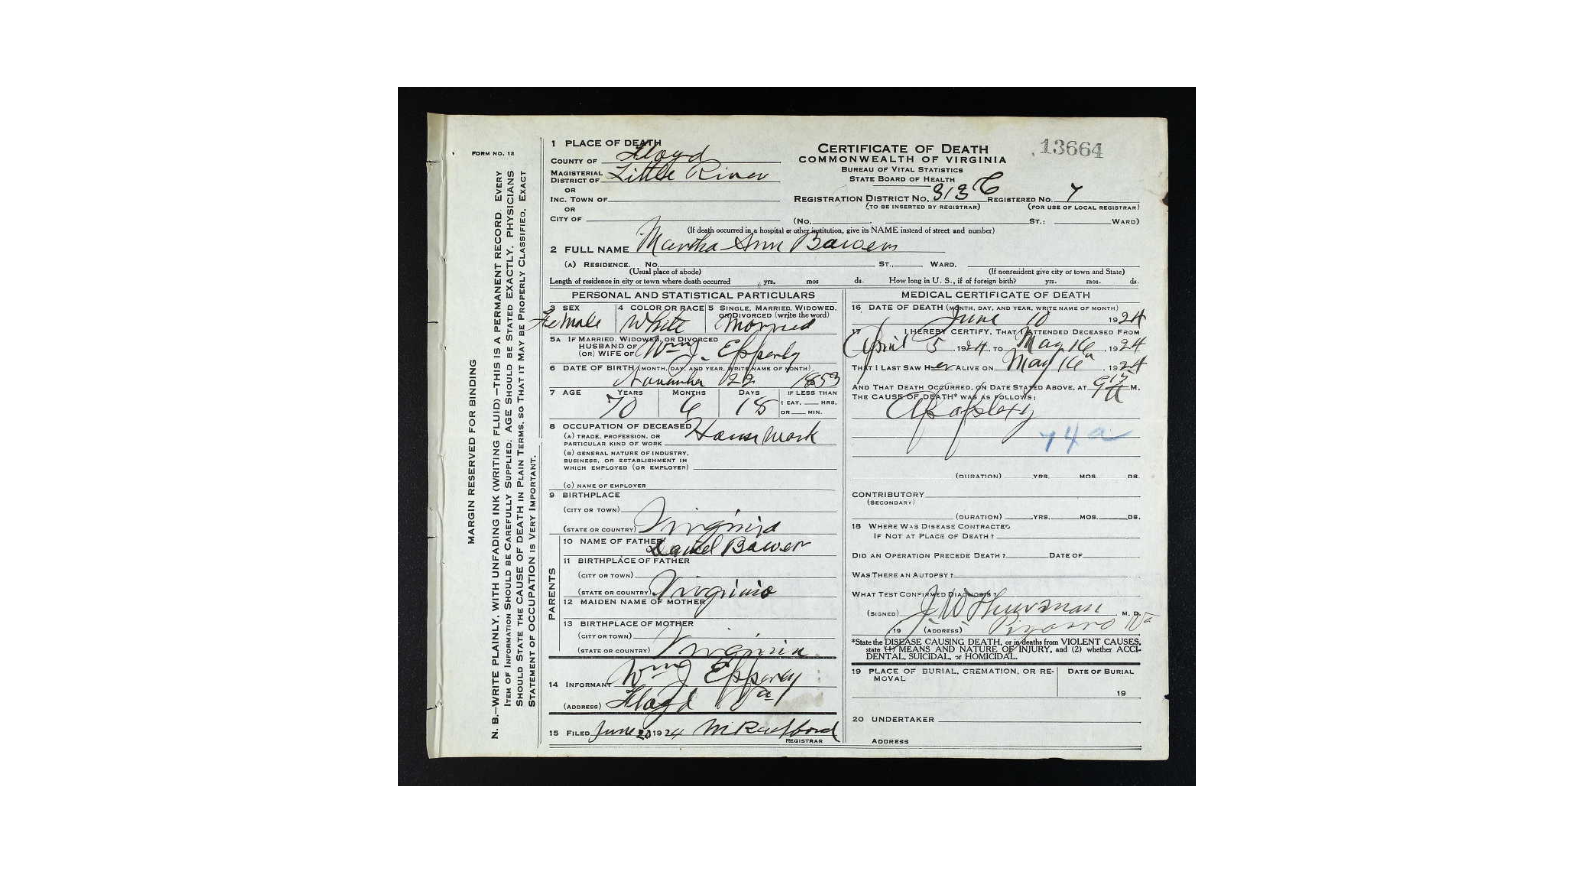 FORM NO. 12
MARGIN RESERVED FOR BINDING
N. B.—WRITE PLAINLY, WITH UNFADING INK (WRITING FLUID)—THIS IS A PERMANENT RECORD. EVERY
ITEM OF INFORMATION SHOULD BE CAREFULLY SUPPLIED. AGE SHOULD BE STATED EXACTLY. PHYSICIANS
SHOULD STATE THE CAUSE OF DEATH IN PLAIN TERMS, SO THAT IT MAY BE PROPERLY CLASSIFIED. EXACT
STATEMENT OF OCCUPATION IS VERY IMPORTANT.
1 PLACE OF DEATH
COUNTY OF Floyd
MAGISTERIAL DISTRICT OF Little River
OR
INC. TOWN OF
OR
CITY OF
CERTIFICATE OF DEATH
COMMONWEALTH OF VIRGINIA
BUREAU OF VITAL STATISTICS
STATE BOARD OF HEALTH
13664
REGISTRATION DISTRICT NO. 313 C REGISTERED NO. 7
(TO BE INSERTED BY REGISTRAR) (FOR USE OF LOCAL REGISTRAR)
(No. ST.; WARD)
(If death occurred in a hospital or other institution, give its NAME instead of street and number)
2 FULL NAME Martha Ann Bowers
(A) RESIDENCE. No. ST., WARD.
(Usual place of abode) (If nonresident give city or town and State)
Length of residence in city or town where death occurred yrs. mos ds. How long in U. S., if of foreign birth? yrs. mos. ds.
PERSONAL AND STATISTICAL PARTICULARS
3 SEX 4 COLOR OR RACE 5 SINGLE, MARRIED, WIDOWED, OR DIVORCED (write the word)
Female White Married
5A IF MARRIED, WIDOWED, OR DIVORCED
HUSBAND OF
(OR) WIFE OF Wm J. Epperly
6 DATE OF BIRTH (MONTH, DAY, AND YEAR, WRITE NAME OF MONTH)
November 22 1853
7 AGE YEARS MONTHS DAYS IF LESS THAN
1 DAY, HRS.
OR MIN.
70 6 18
8 OCCUPATION OF DECEASED
(A) TRADE, PROFESSION, OR
PARTICULAR KIND OF WORK House Work
(B) GENERAL NATURE OF INDUSTRY,
BUSINESS, OR ESTABLISHMENT IN
WHICH EMPLOYED (OR EMPLOYER)
(C) NAME OF EMPLOYER
9 BIRTHPLACE
(CITY OR TOWN)
(STATE OR COUNTRY) Virginia
PARENTS
10 NAME OF FATHER Daniel Bower
11 BIRTHPLACE OF FATHER
(CITY OR TOWN)
(STATE OR COUNTRY) Virginia
12 MAIDEN NAME OF MOTHER
13 BIRTHPLACE OF MOTHER
(CITY OR TOWN)
(STATE OR COUNTRY) Virginia
14 INFORMANT Wm J Epperly
(ADDRESS) Floyd Va
15 FILED June 1924 M Radford
REGISTRAR
MEDICAL CERTIFICATE OF DEATH
16 DATE OF DEATH (MONTH, DAY, AND YEAR, WRITE NAME OF MONTH)
June 10 1924
17 I HEREBY CERTIFY, THAT I ATTENDED DECEASED FROM
April 5 1924 TO May 16, 1924
THAT I LAST SAW HER ALIVE ON May 16, 1924
AND THAT DEATH OCCURRED, ON DATE STATED ABOVE, AT 9 A M.
THE CAUSE OF DEATH* WAS AS FOLLOWS:
Apoplexy
74a
(DURATION) YRS. MOS. DS.
CONTRIBUTORY
(SECONDARY)
(DURATION) YRS. MOS. DS.
18 WHERE WAS DISEASE CONTRACTED
IF NOT AT PLACE OF DEATH?
DID AN OPERATION PRECEDE DEATH? DATE OF
WAS THERE AN AUTOPSY?
WHAT TEST CONFIRMED DIAGNOSIS?
(SIGNED) J W Thurman M. D.
19 (ADDRESS) Pizarro Va
*State the DISEASE CAUSING DEATH, or in deaths from VIOLENT CAUSES,
state (1) MEANS AND NATURE OF INJURY, and (2) whether ACCI-
DENTAL, SUICIDAL, or HOMICIDAL.
19 PLACE OF BURIAL, CREMATION, OR RE-
MOVAL
DATE OF BURIAL
19
20 UNDERTAKER
ADDRESS